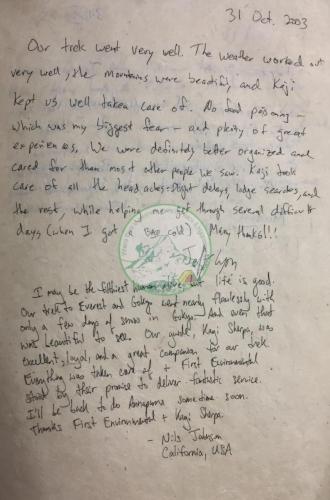 31 Oct. 2003
Our trek went very well. The weather worked out
very well, the mountains were beautiful, and Kaji
kept us well taken care of. No food poisoning –
which was my biggest fear – and plenty of great
experiences. We were definitely better organized and
cared for than most other people we saw. Kaji took
care of all the headaches: flight delays, lodge searches, and
the rest, while helping me get through several difficult
days (when I got a bad cold). Many thanks!!
I may be the filthiest human alive, but life is good.
Our trek to Everest and Gokyo went nearly flawlessly with
only a few days of snow in Gokyo. And even that
was beautiful to see. Our guide, Kaji Sherpa, was
excellent, loyal, and a great companion for our trek.
Everything was taken care of + First Environmental
stood by their promise to deliver fantastic service.
I'll be back to do Annapurna sometime soon.
Thanks First Environmental + Kaji Sherpa.
- Nils
California, USA